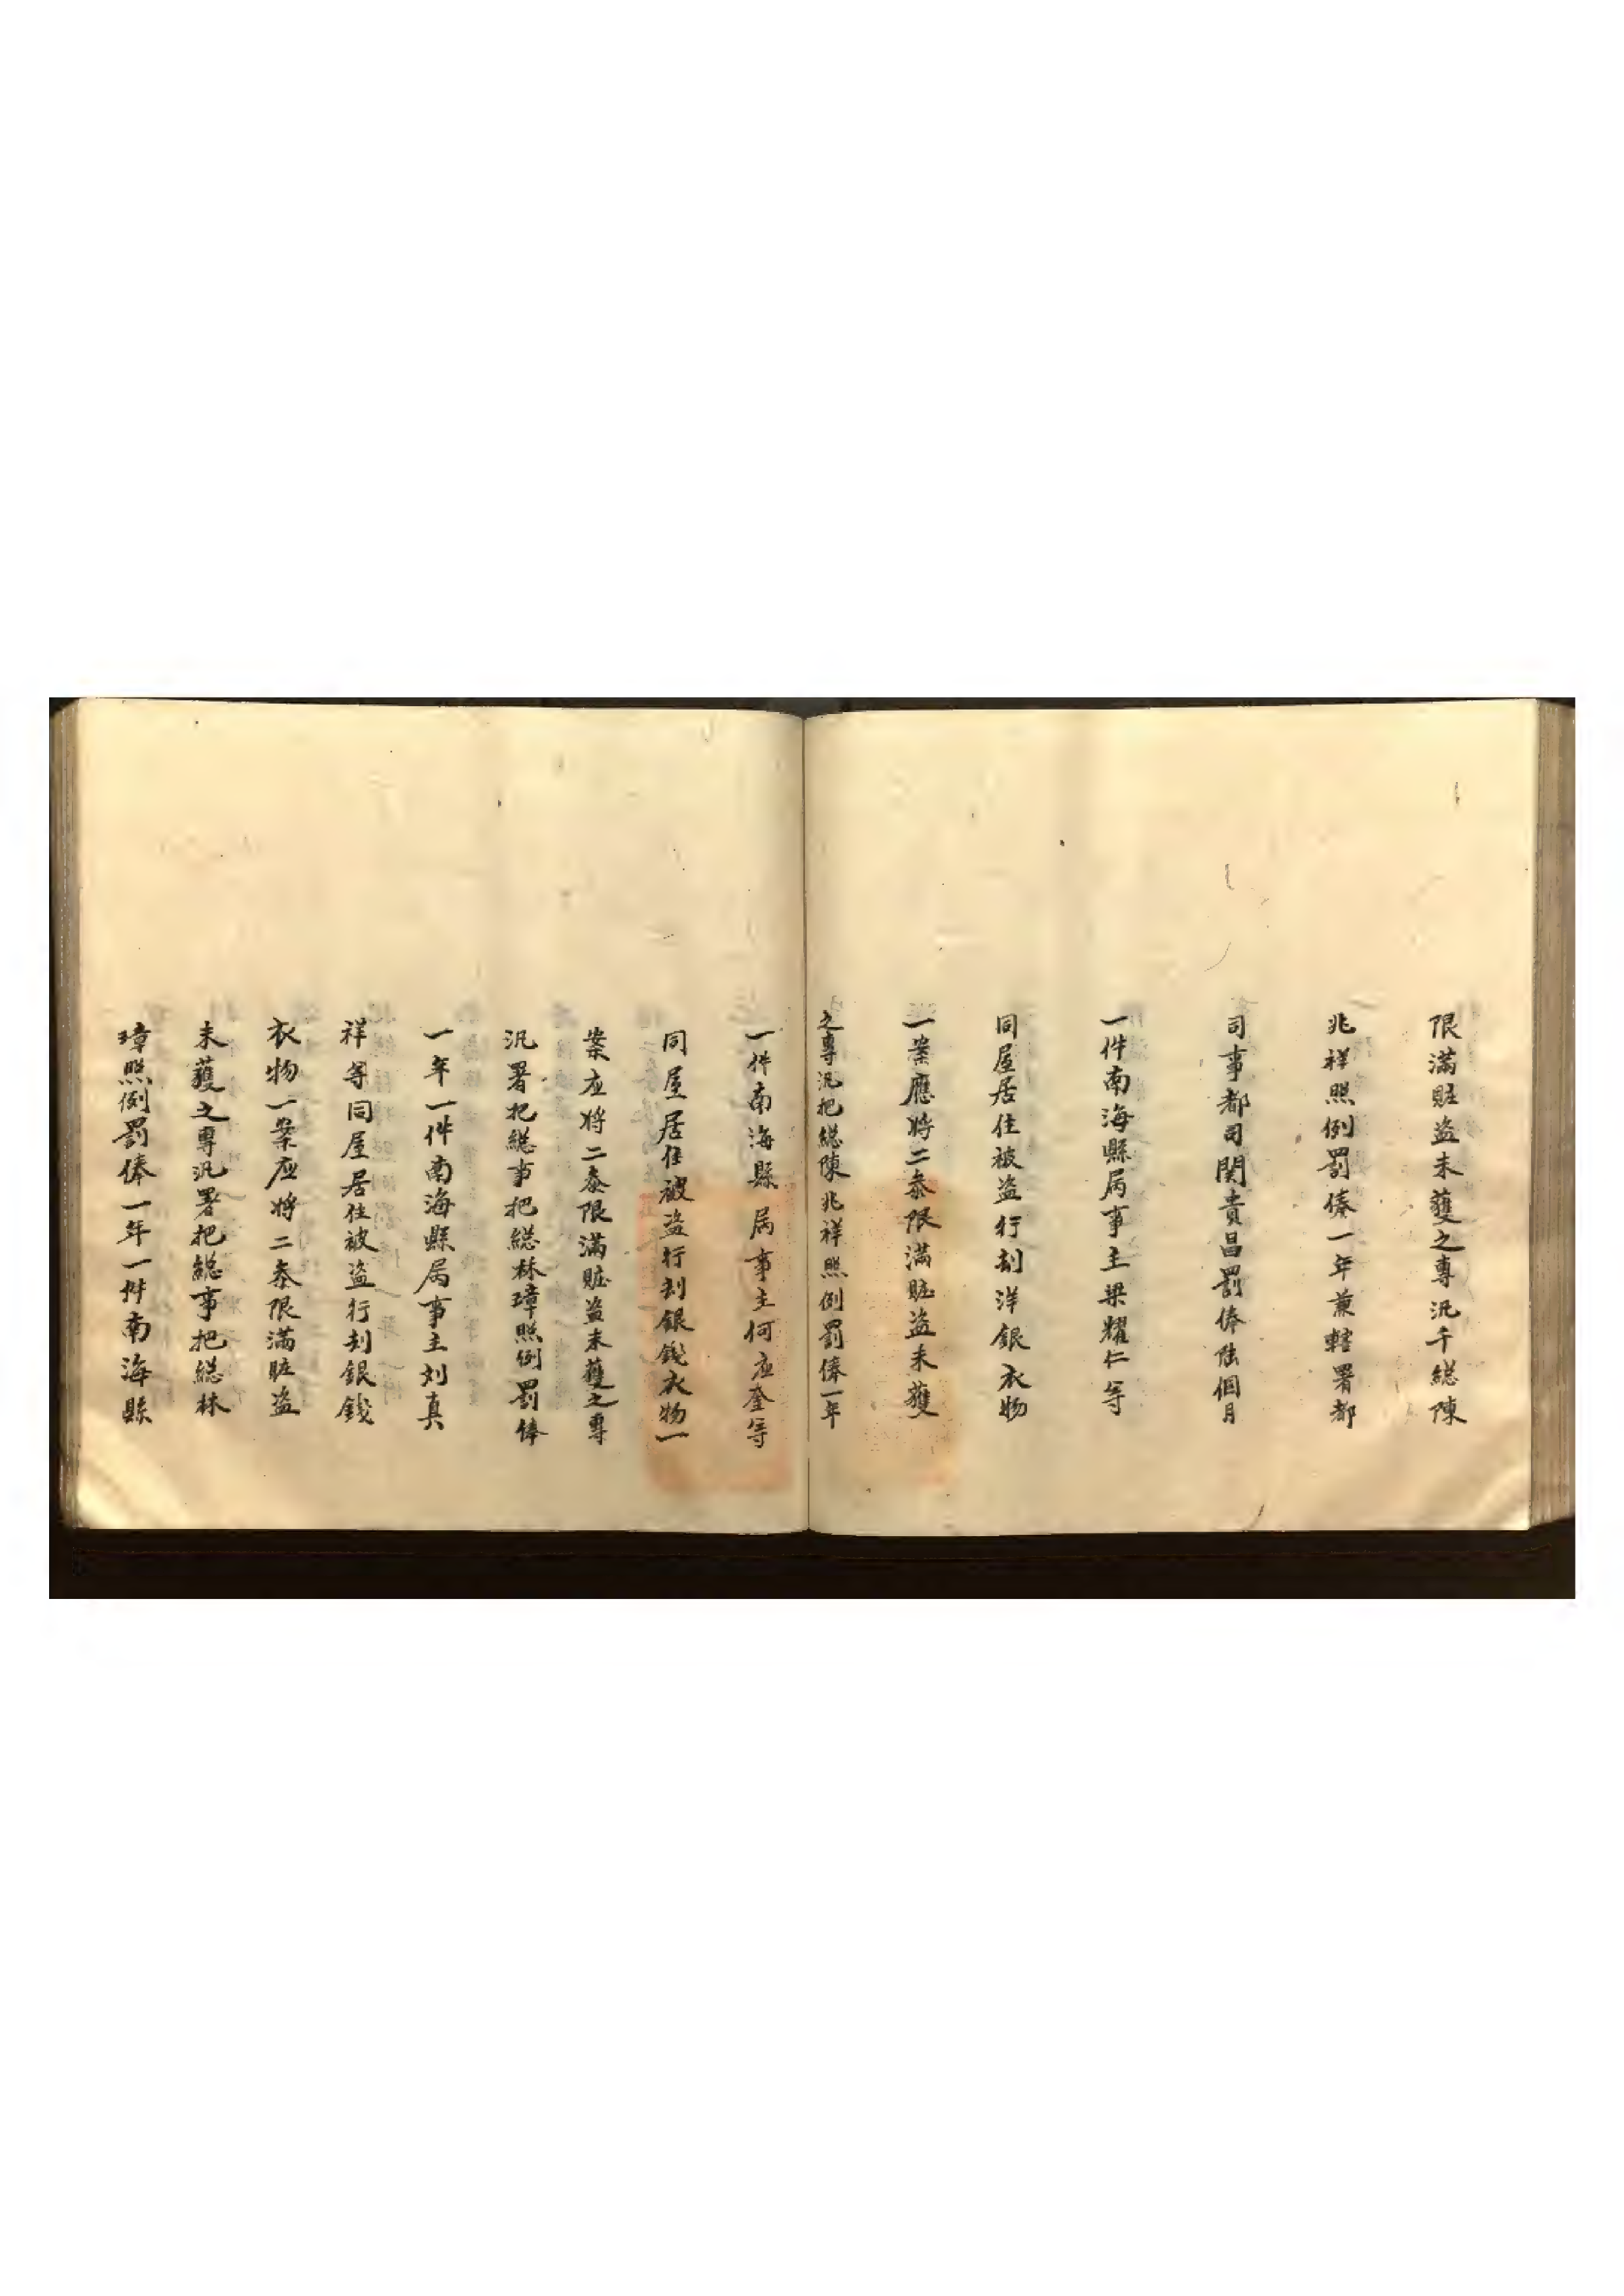 限滿賍盗未獲之專汛千総陳
兆祥照例罰俸一年兼轄署都
司事都司関貴昌罰俸陆個月
一件南海縣屬事主梁耀仁等
同屋居住被盗行刧洋銀衣物
一案應將二叅限滿賍盗未獲
之專汛把総陳兆祥照例罰俸一年
一件南海縣屬事主何应奎等
同屋居住被盗行刧銀錢衣物一
案应將二叅限滿賍盗未獲之專
汛署把総事把総林璋照例罰俸
一年一件南海縣屬事主刘真
祥等同屋居住被盗行刧銀錢
衣物一案应將二叅限滿賍盗
未獲之專汛署把総事把総林
璋照例罰俸一年一件南海縣